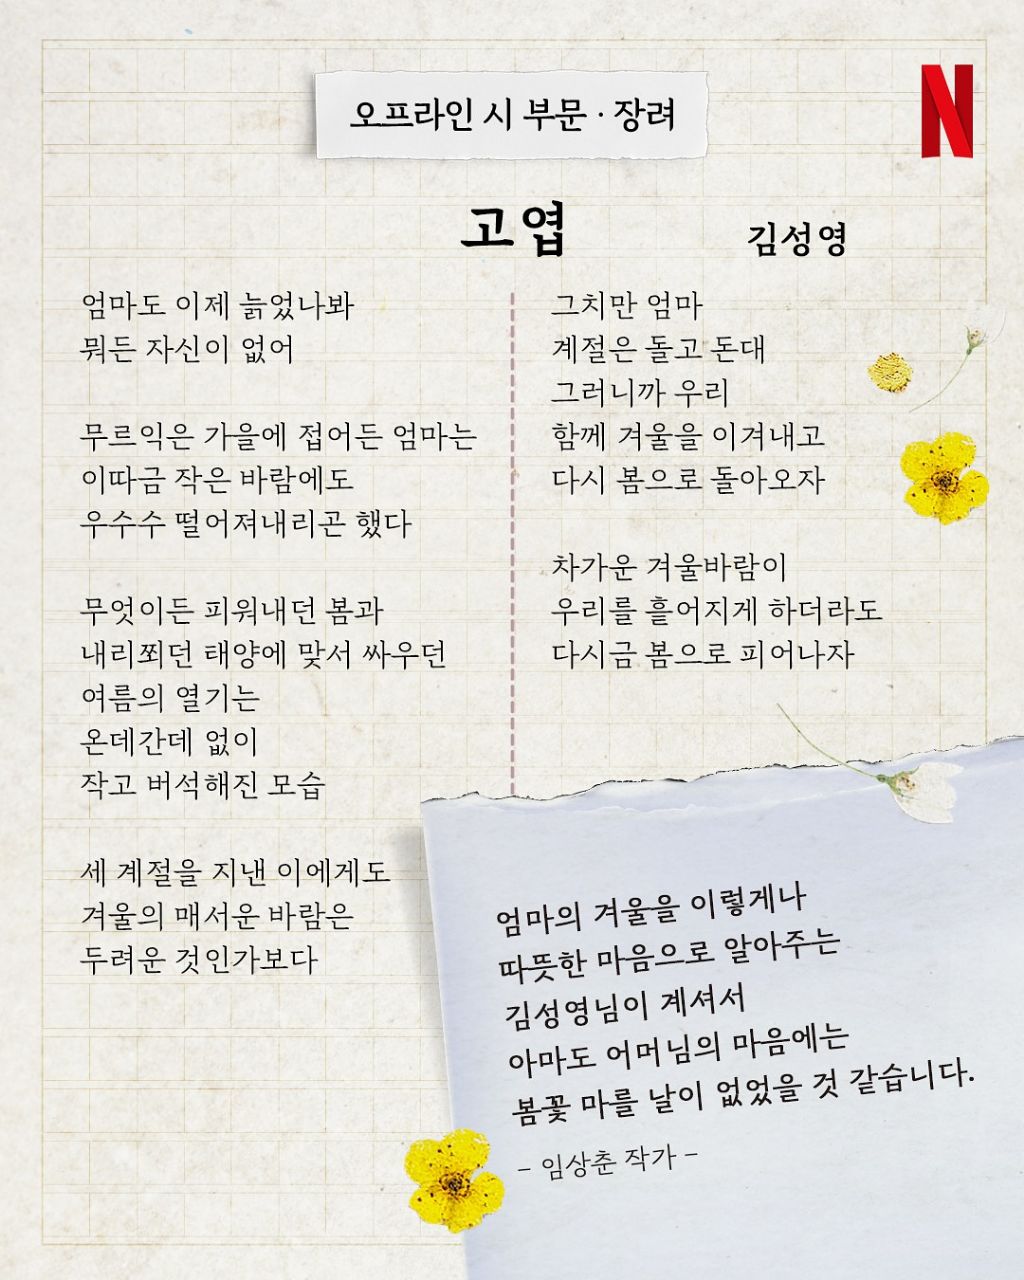 오프라인 시 부문 · 장려
N
고엽
김성영
엄마도 이제 늙었나봐
뭐든 자신이 없어
무르익은 가을에 접어든 엄마는
이따금 작은 바람에도
우수수 떨어져내리곤 했다
무엇이든 피워내던 봄과
내리쬐던 태양에 맞서 싸우던
여름의 열기는
온데간데 없이
작고 버석해진 모습
세 계절을 지낸 이에게도
겨울의 매서운 바람은
두려운 것인가보다
그치만 엄마
계절은 돌고 돈대
그러니까 우리
함께 겨울을 이겨내고
다시 봄으로 돌아오자
차가운 겨울바람이
우리를 흩어지게 하더라도
다시금 봄으로 피어나자
엄마의 겨울을 이렇게나
따뜻한 마음으로 알아주는
김성영님이 계셔서
아마도 어머님의 마음에는
봄꽃 마를 날이 없었을 것 같습니다.
- 임상춘 작가 -